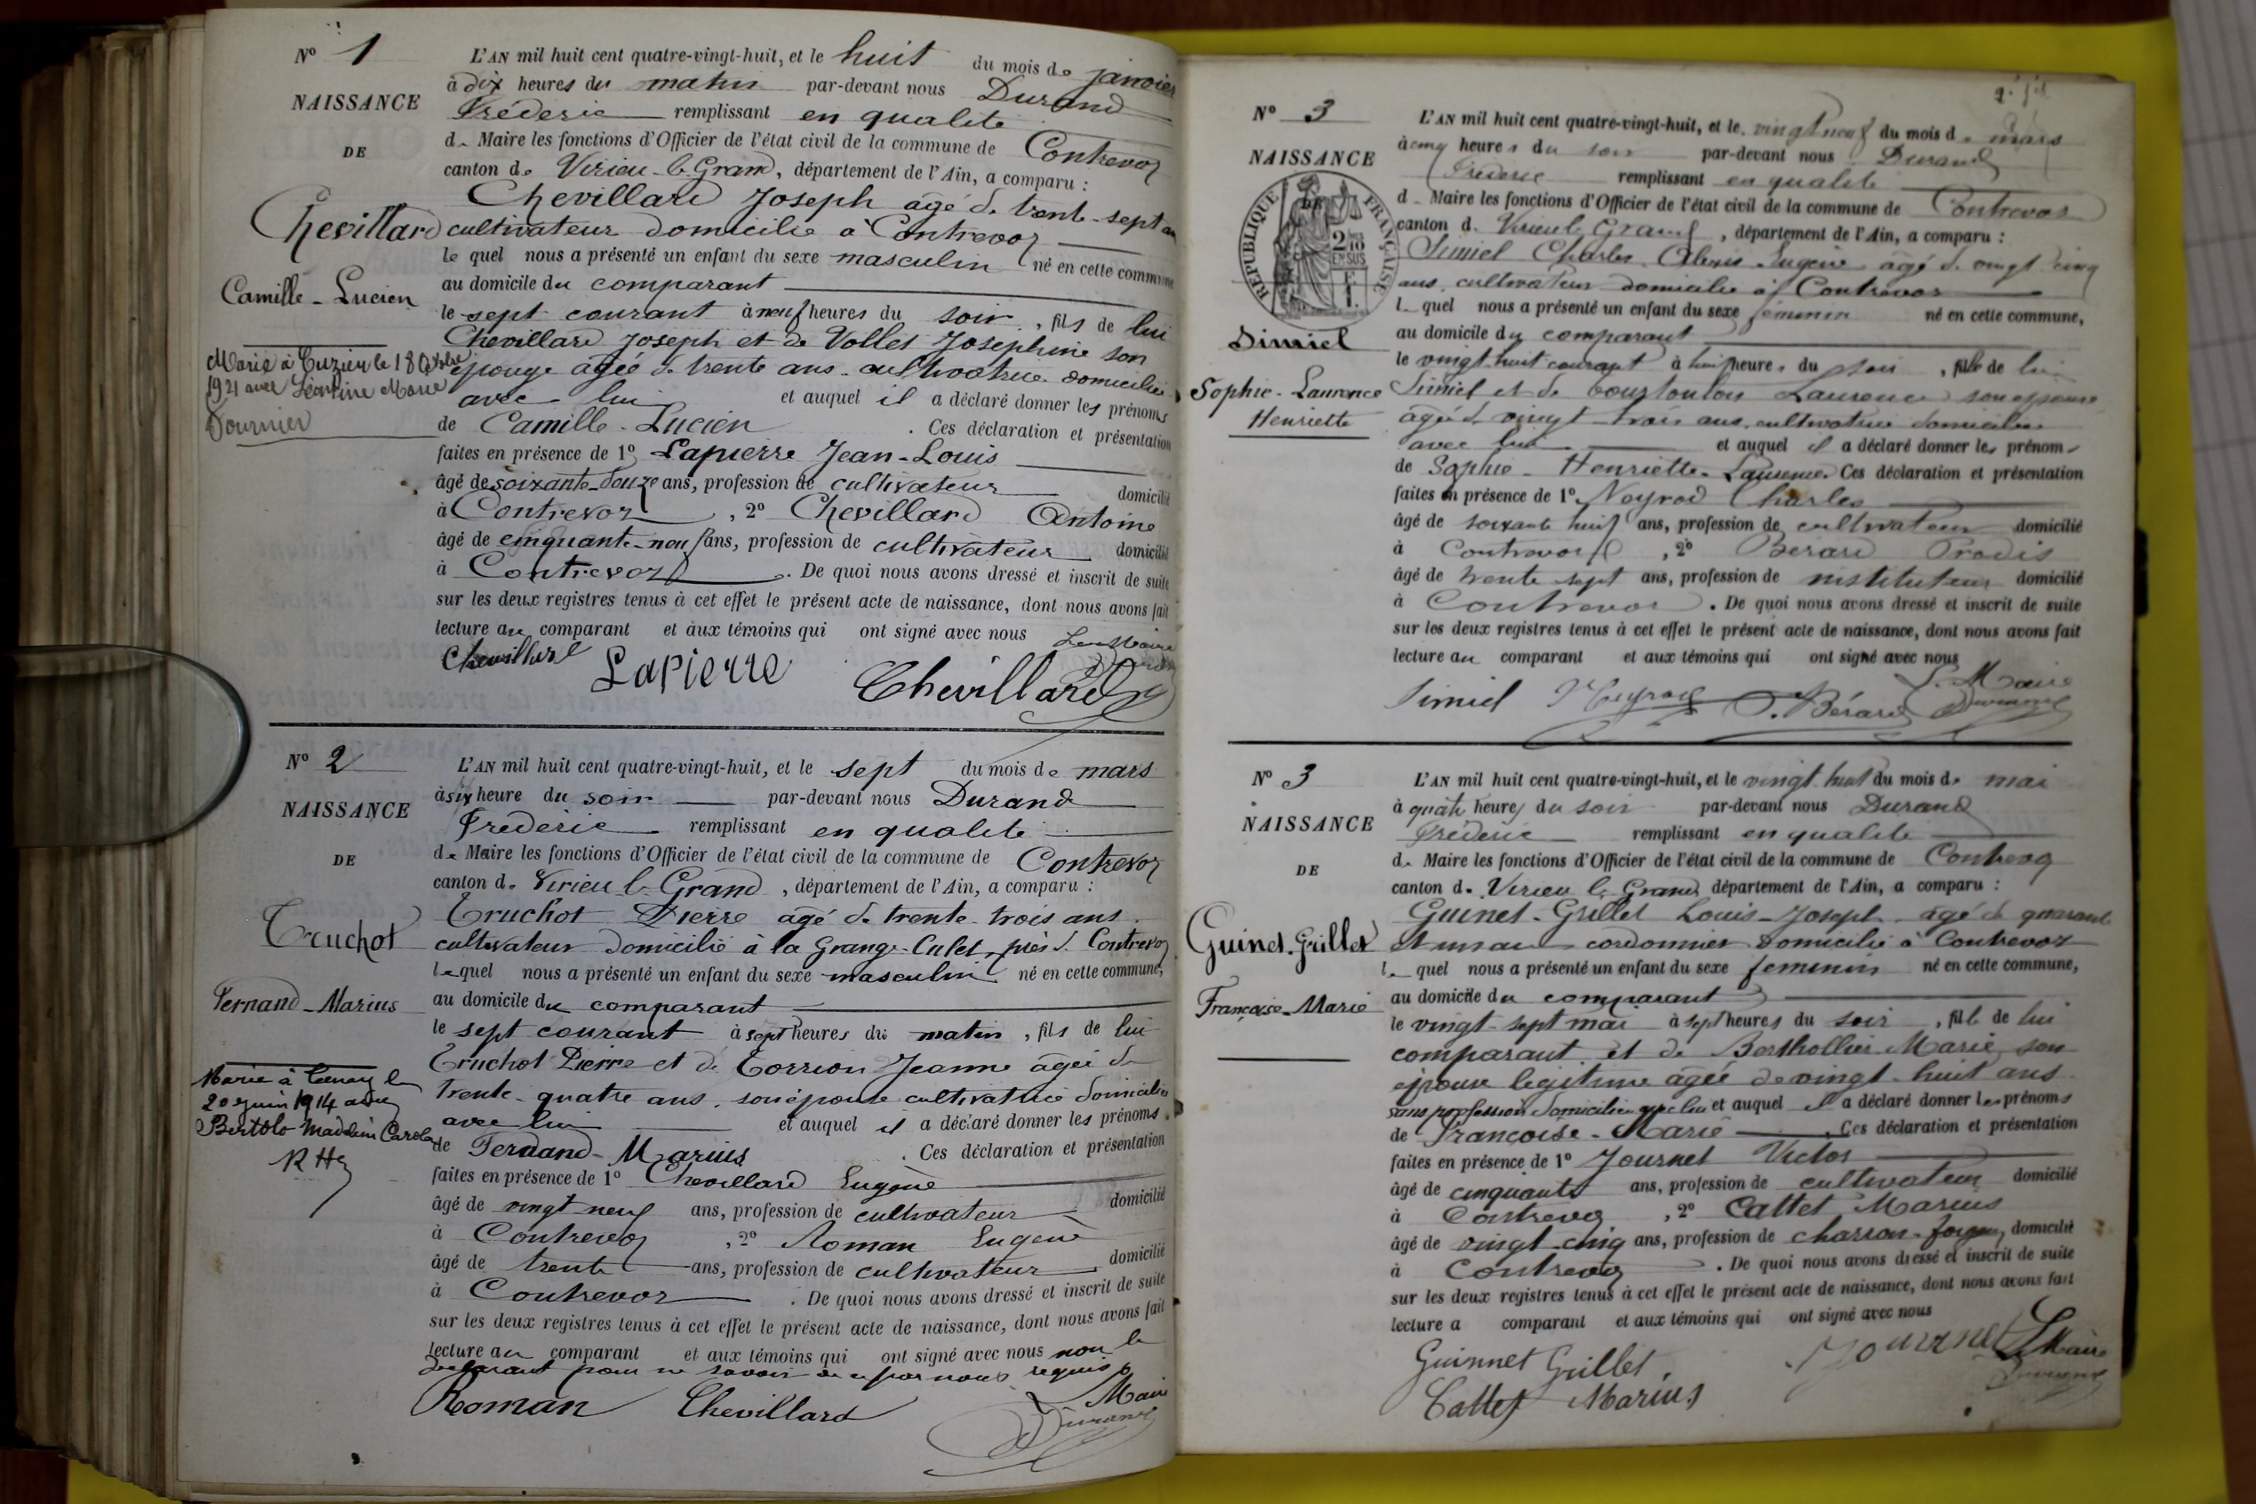 N° 1
NAISSANCE
DE
Chevillard
Camille - Lucien
Marié à Cuzieu le 18 Octobre
1921 avec Léontine Marie
Fournier
L'AN mil huit cent quatre-vingt-huit, et le huit du mois de janvier
à dix heures du matin par-devant nous Durand
Fréderic remplissant en qualité
de Maire les fonctions d'Officier de l'état civil de la commune de Contrevoz
canton de Virieu-le-Grand, département de l'Ain, a comparu :
Chevillard Joseph âgé de trente-sept ans
cultivateur domicilié à Contrevoz
lequel nous a présenté un enfant du sexe masculin né en cette commune
au domicile du comparant
le sept courant à neuf heures du soir, fils de lui
Chevillard Joseph et de Vollet Joséphine son
épouse âgée de trente ans cultivatrice domiciliée
avec lui et auquel il a déclaré donner les prénoms
de Camille-Lucien. Ces déclaration et présentation
faites en présence de 1° Lapierre Jean-Louis
âgé de soixante-douze ans, profession de cultivateur domicilié
à Contrevoz, 2° Chevillard Antoine
âgé de cinquante-neuf ans, profession de cultivateur domicilié
à Contrevoz. De quoi nous avons dressé et inscrit de suite
sur les deux registres tenus à cet effet le présent acte de naissance, dont nous avons fait
lecture au comparant et aux témoins qui ont signé avec nous
Le Maire
Chevillard Lapierre Chevillard Durand
N° 2
NAISSANCE
DE
Truchot
Fernand-Marius
Marié à Tenay le
20 juin 1914 avec
Bertolo Madelein Carola
L'AN mil huit cent quatre-vingt-huit, et le sept du mois de mars
à six heure du soir par-devant nous Durand
Fréderic remplissant en qualité
de Maire les fonctions d'Officier de l'état civil de la commune de Contrevoz
canton de Virieu-le-Grand, département de l'Ain, a comparu :
Truchot Pierre âgé de trente-trois ans
cultivateur domicilié à la Grange-Culet, près de Contrevoz
lequel nous a présenté un enfant du sexe masculin né en cette commune,
au domicile du comparant
le sept courant à sept heures du matin, fils de lui
Truchot Pierre et de Corrion Jeanne âgée de
trente-quatre ans, son épouse cultivatrice domiciliée
avec lui et auquel il a déclaré donner les prénoms
de Fernand-Marius. Ces déclaration et présentation
faites en présence de 1° Chevillard Eugène
âgé de vingt-neuf ans, profession de cultivateur domicilié
à Contrevoz, 2° Roman Eugène
âgé de trente ans, profession de cultivateur domicilié
à Contrevoz. De quoi nous avons dressé et inscrit de suite
sur les deux registres tenus à cet effet le présent acte de naissance, dont nous avons fait
lecture au comparant et aux témoins qui ont signé avec nous non le
déclarant pour ne savoir de ce par nous requis
Roman Chevillard Le Maire
Durand
N° 3
NAISSANCE
RÉPUBLIQUE FRANÇAISE
Simiel
Sophie-Laurence
Henriette
L'AN mil huit cent quatre-vingt-huit, et le vingt neuf du mois de mars
à cinq heures du soir par-devant nous Durand
Fréderic remplissant en qualité
de Maire les fonctions d'Officier de l'état civil de la commune de Contrevoz
canton de Virieu le Grand, département de l'Ain, a comparu :
Simiel Charles Alexis Eugène âgé de vingt cinq
ans cultivateur domicilié à Contrevoz
lequel nous a présenté un enfant du sexe féminin né en cette commune,
au domicile du comparant
le vingt-huit courant à huit heures du soir, fille de lui
Simiel et de Courtoulou Laurence son épouse
âgée de vingt-trois ans, cultivatrice domiciliée
avec lui et auquel il a déclaré donner les prénoms
de Sophie-Henriette-Laurence. Ces déclaration et présentation
faites en présence de 1° Neyrod Charles
âgé de soixante huit ans, profession de cultivateur domicilié
à Contrevoz, 2° Bérard Prodis
âgé de trente sept ans, profession de instituteur domicilié
à Contrevoz. De quoi nous avons dressé et inscrit de suite
sur les deux registres tenus à cet effet le présent acte de naissance, dont nous avons fait
lecture au comparant et aux témoins qui ont signé avec nous
Le Maire
Simiel Neyrod P. Bérard Durand
N° 3
NAISSANCE
DE
Guinet-Grillet
Françoise-Marie
L'AN mil huit cent quatre-vingt-huit, et le vingt huit du mois de mai
à quatre heures du soir par-devant nous Durand
Fréderic remplissant en qualité
de Maire les fonctions d'Officier de l'état civil de la commune de Contrevoz
canton de Virieu le Grand, département de l'Ain, a comparu :
Guinet-Grillet Louis-Joseph âgé de quarante
et un ans cordonnier domicilié à Contrevoz
lequel nous a présenté un enfant du sexe feminin né en cette commune,
au domicile du comparant
le vingt-sept mai à sept heures du soir, fille de lui
comparant et de Berthollier Marie, son
épouse légitime âgée de vingt-huit ans
sans profession domiciliée avec lui et auquel il a déclaré donner les prénoms
de Françoise-Marie. Ces déclaration et présentation
faites en présence de 1° Journet Victor
âgé de cinquante ans, profession de cultivateur domicilié
à Contrevoz, 2° Cattet Marius
âgé de vingt-cinq ans, profession de charron-forgeron domicilié
à Contrevoz. De quoi nous avons dressé et inscrit de suite
sur les deux registres tenus à cet effet le présent acte de naissance, dont nous avons fait
lecture a comparant et aux témoins qui ont signé avec nous
Guinnet Grillet Journet Le Maire
Cattet Marius Durand